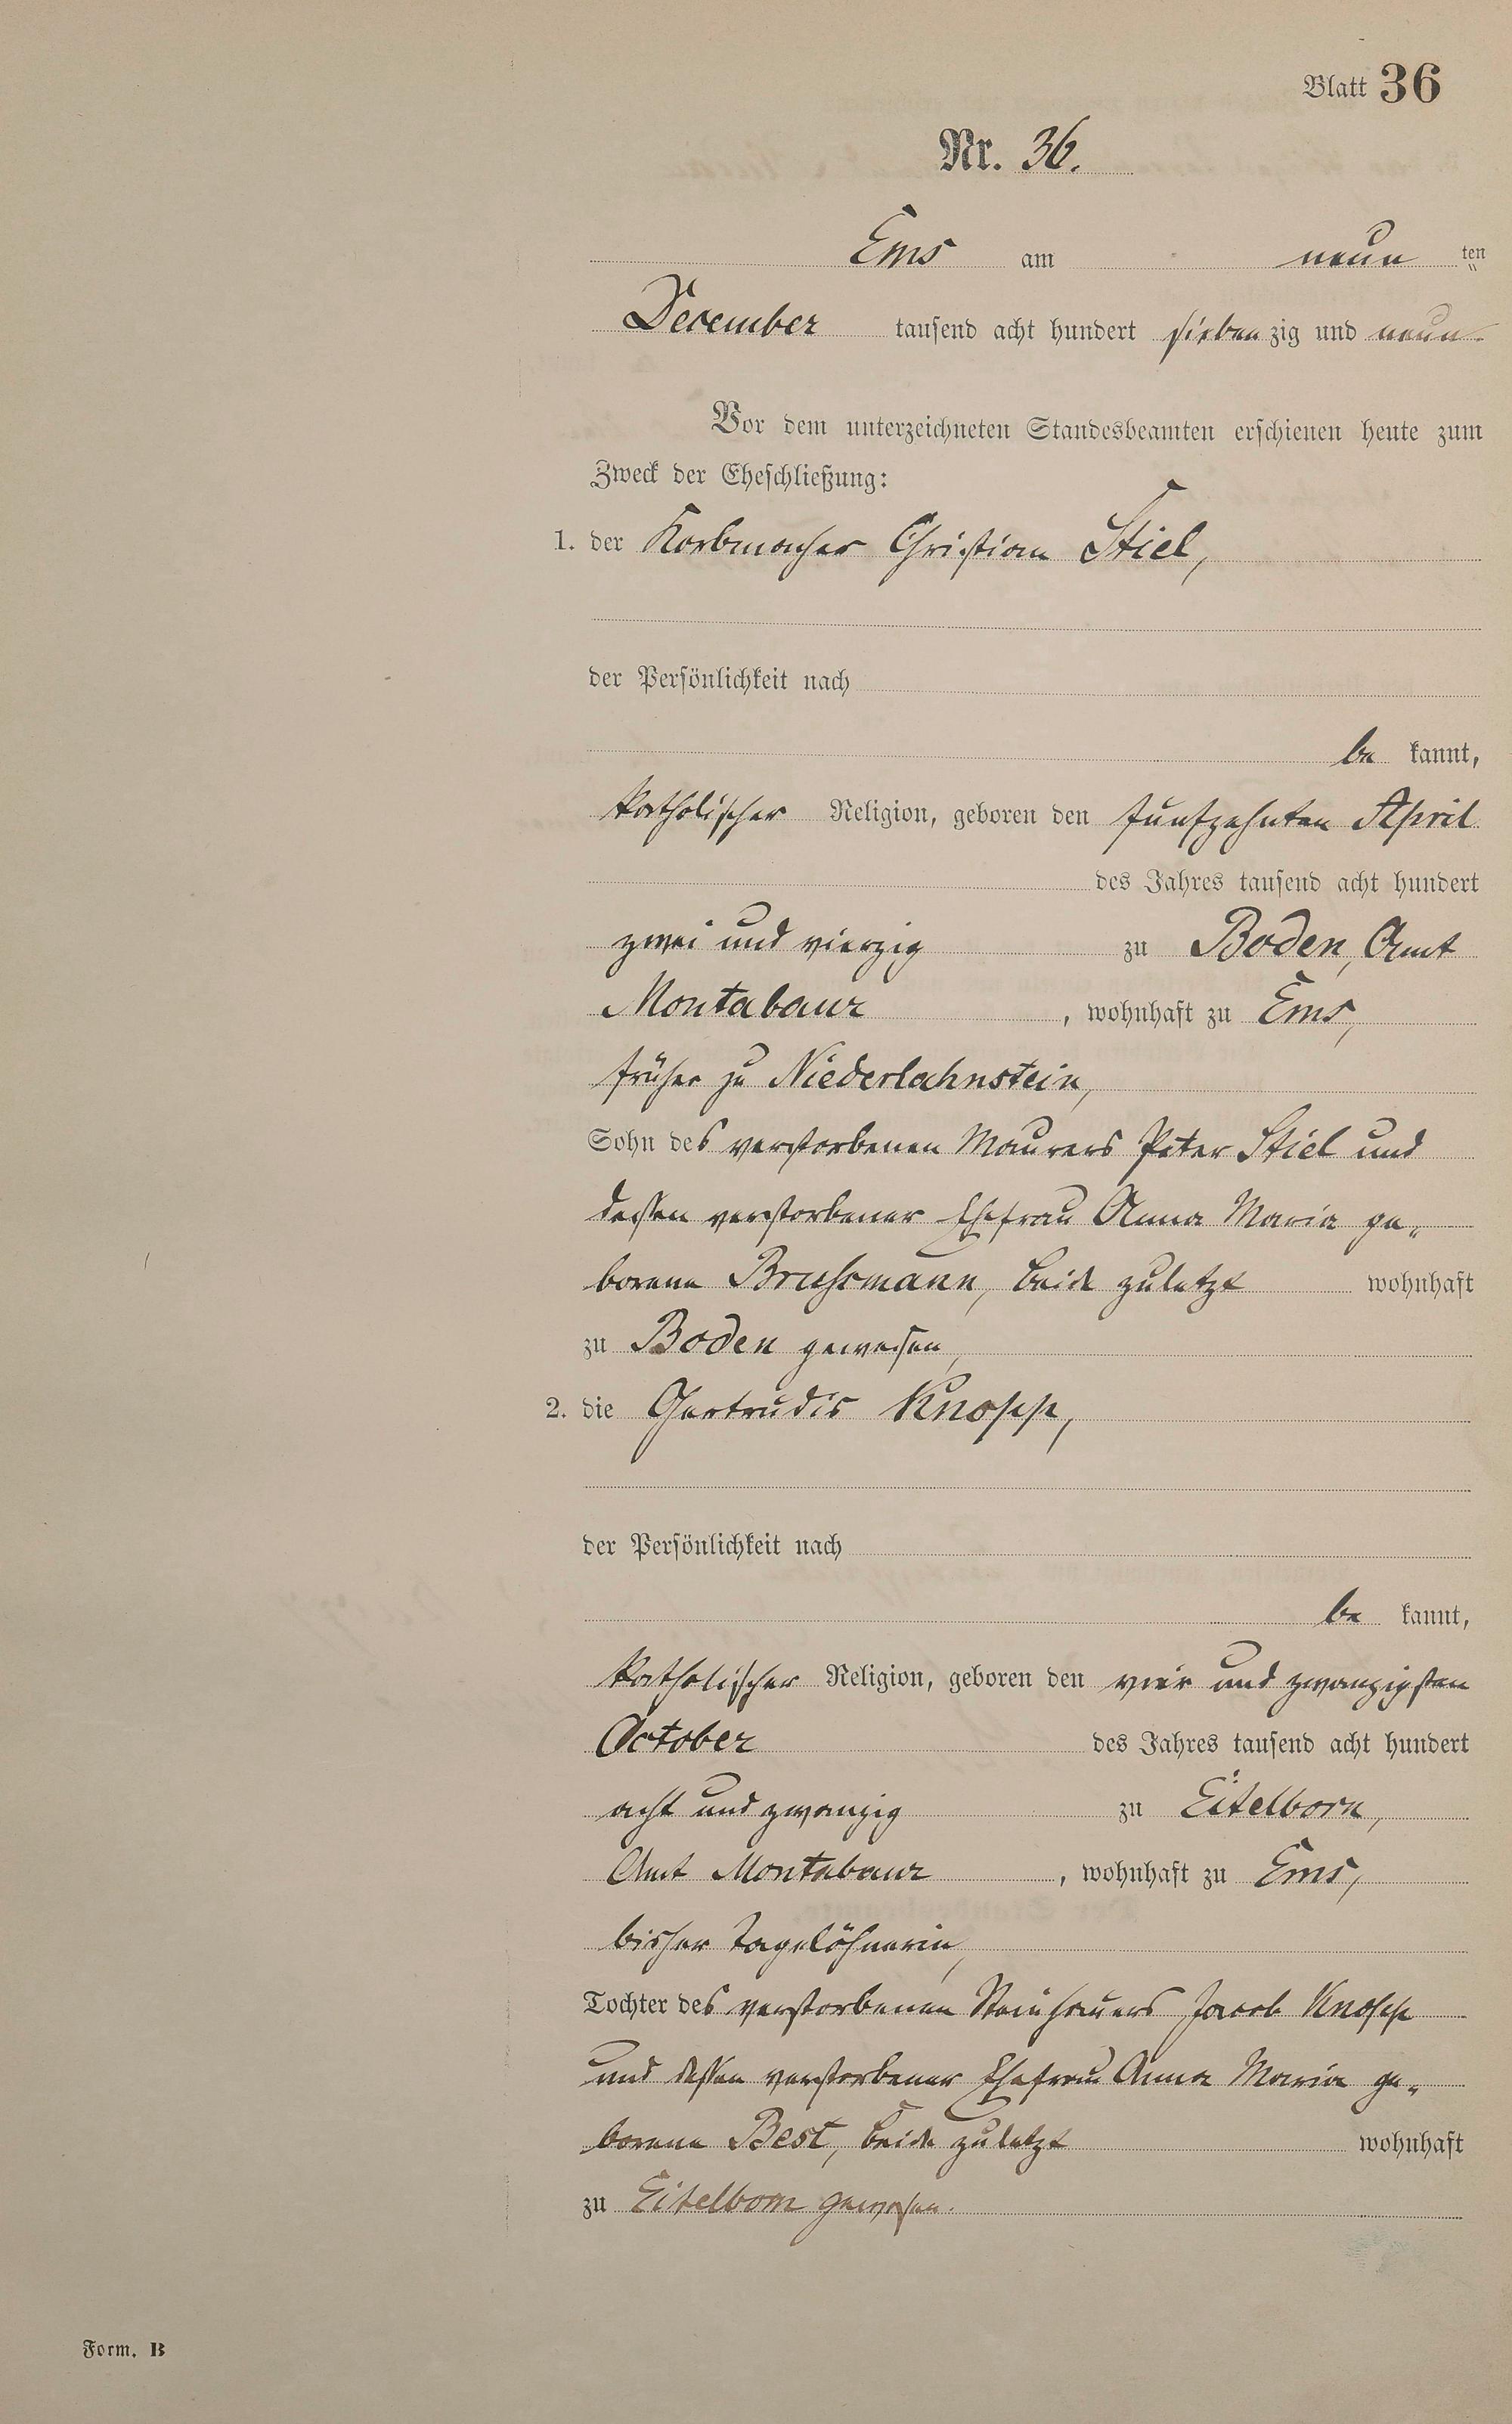 Blatt 36
Nr. 36.
Ems am neun ten
December tausend acht hundert siebenzig und neun.
Vor dem unterzeichneten Standesbeamten erschienen heute zum
Zweck der Eheschließung:
1. der Korbmacher Christian Stiel,
der Persönlichkeit nach
be kannt,
katholischer Religion, geboren den fünfzehnten April
des Jahres tausend acht hundert
zwei und vierzig zu Boden, Amt
Montabaur, wohnhaft zu Ems,
früher zu Niederlahnstein,
Sohn des verstorbenen Maurers Peter Stiel und
dessen verstorbener Ehefrau Anna Maria ge„
borene beide zuletzt wohnhaft
zu Boden gewesen,
2. die Gertrudis Knopp,
der Persönlichkeit nach
be kannt,
katholischer Religion, geboren den vier und zwanzigsten
October des Jahres tausend acht hundert
acht und zwanzig zu Eitelborn,
Amt Montabaur, wohnhaft zu Ems,
bisher Tagelöhnerin,
Tochter des verstorbenen Steinhauers Jacob Knopp
und dessen verstorbener Ehefrau Anna Maria ge„
borene Best, beide zuletzt wohnhaft
zu Eitelborn gewesen.
Form. B